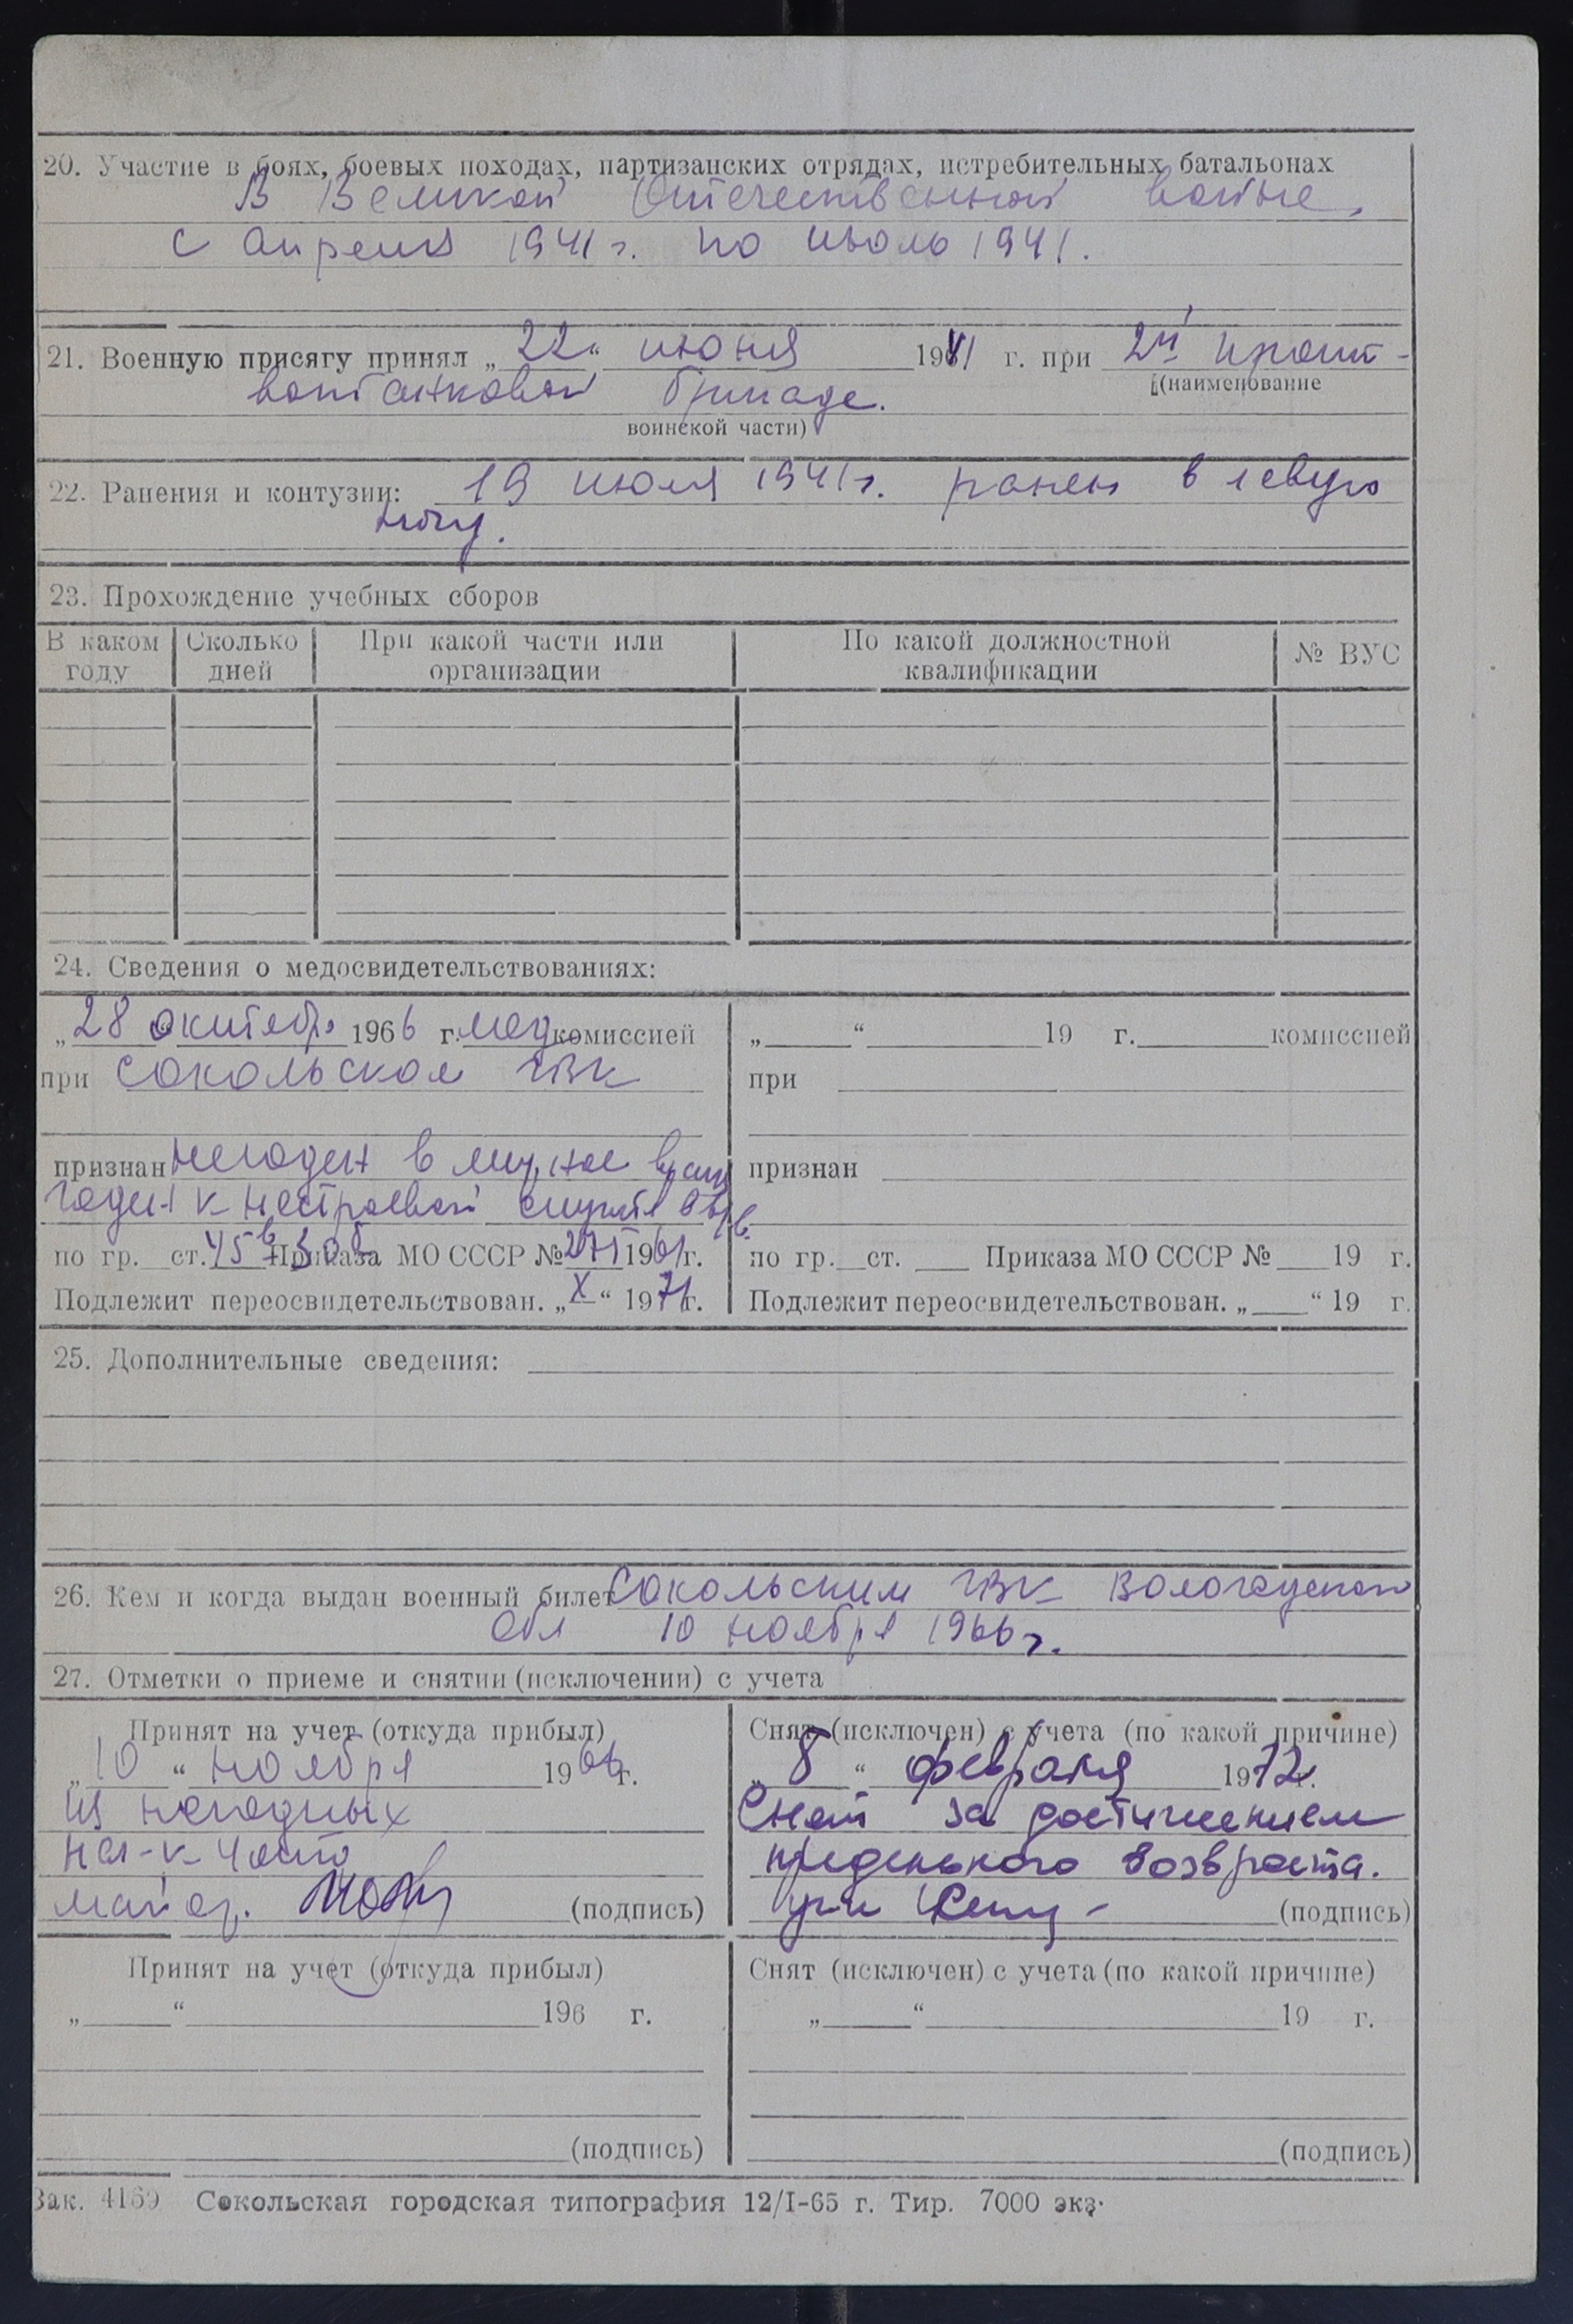 20. Участие в боях, боевых походах, партизанских отрядах, истребительных батальонах
В Великой Отечественной войне,
с апреля 1941 г. по июль 1941.
21. Военную присягу принял „22“ июня 1941 г. при 2й прот-
(наименование
вотанковой бригаде.
воинской части)
22. Ранения и контузии: 19 июля 1941 г. ранен в левую
ногу.
23. Прохождение учебных сборов
В каком году Сколько дней При какой части или организации По какой должностной квалификации № ВУС
24. Сведения о медосвидетельствованиях:
„28 октябр 1966 г. мед комиссией
при Сокольском ГВК
признан негоден в мирное врем
годен к нестроевой службе в в/в.
по гр. ст. 45 в Приказа МО СССР № 271 1961 г.
Подлежит переосвидетельствован. „X“ 1971 г.
„ “ 19 г. комиссией
при
признан
по гр. ст. Приказа МО СССР № 19 г.
Подлежит переосвидетельствован. „ “ 19 г.
25. Дополнительные сведения:
26. Кем и когда выдан военный билет Сокольским ГВК Вологодской
обл 10 ноября 1966 г.
27. Отметки о приеме и снятии (исключении) с учета
Принят на учет (откуда прибыл)
„10“ ноября 1966 г.
из негодных
нач-к части
майор. (подпись)
Снят (исключен) с учета (по какой причине)
„8“ февраля 1972 г.
Снят за достижением
предельного возвраста.
(подпись)
Принят на учет (откуда прибыл)
„ “ 196 г.
(подпись)
Снят (исключен) с учета (по какой причине)
„ “ 19 г.
(подпись)
Зак. 4169 Сокольская городская типография 12/I-65 г. Тир. 7000 экз.